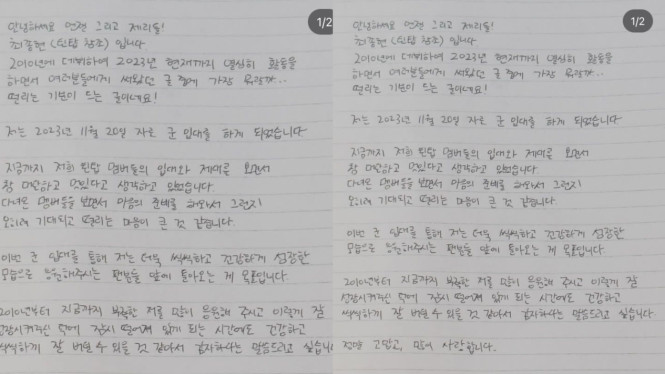 1/2
안녕하세요 언젠 그리고 제리들!
최종현 (틴탑 창조) 입니다
2010년에 데뷔하여 2023년 현재까지 열심히 활동을
하면서 여러분들에게 써왔던 글 중에 가장
떨리는 기분이 드는 글이네요!
저는 2023년 11월 20일 자로 군 입대를 하게 되었습니다
지금까지 저희 틴탑 멤버들의 입대와 제대를 보면서
참 대단하고 멋있다고 생각하고 있었습니다.
다녀온 멤버들을 보면서 마음의 준비를 해와서 그런지
오히려 기대되고 떨리는 마음이 큰 것 같습니다.
이번 군 입대를 통해 저는 더욱 씩씩하고 건강하게 성장한
모습으로 응원해주시는 팬분들 앞에 돌아오는 게 목표입니다.
2010년부터 지금까지 부족한 저를 많이 응원해 주시고 이렇게 잘
성장시켜주신 덕에 잠시 떨어져 있게 되는 시간에도 건강하고
씩씩하게 잘 버틸 수 있을 것 같아서 감사하다는 말씀드리고 싶습니
1/2
안녕하세요 언젠 그리고 제리들!
최종현 (틴탑 창조) 입니다
2010년에 데뷔하여 2023년 현재까지 열심히 활동을
하면서 여러분들에게 써왔던 글 중에 가장
떨리는 기분이 드는 글이네요!
저는 2023년 11월 20일 자로 군 입대를 하게 되었습니다
지금까지 저희 틴탑 멤버들의 입대와 제대를 보면서
참 대단하고 멋있다고 생각하고 있었습니다.
다녀온 멤버들을 보면서 마음의 준비를 해와서 그런지
오히려 기대되고 떨리는 마음이 큰 것 같습니다.
이번 군 입대를 통해 저는 더욱 씩씩하고 건강하게 성장한
모습으로 응원해주시는 팬분들 앞에 돌아오는 게 목표입니다.
2010년부터 지금까지 부족한 저를 많이 응원해 주시고 이렇게 잘
성장시켜주신 덕에 잠시 떨어져 있게 되는 시간에도 건강하고
씩씩하게 잘 버틸 수 있을 것 같아서 감사하다는 말씀드리고 싶습니다
정말 고맙고, 많이 사랑합니다.